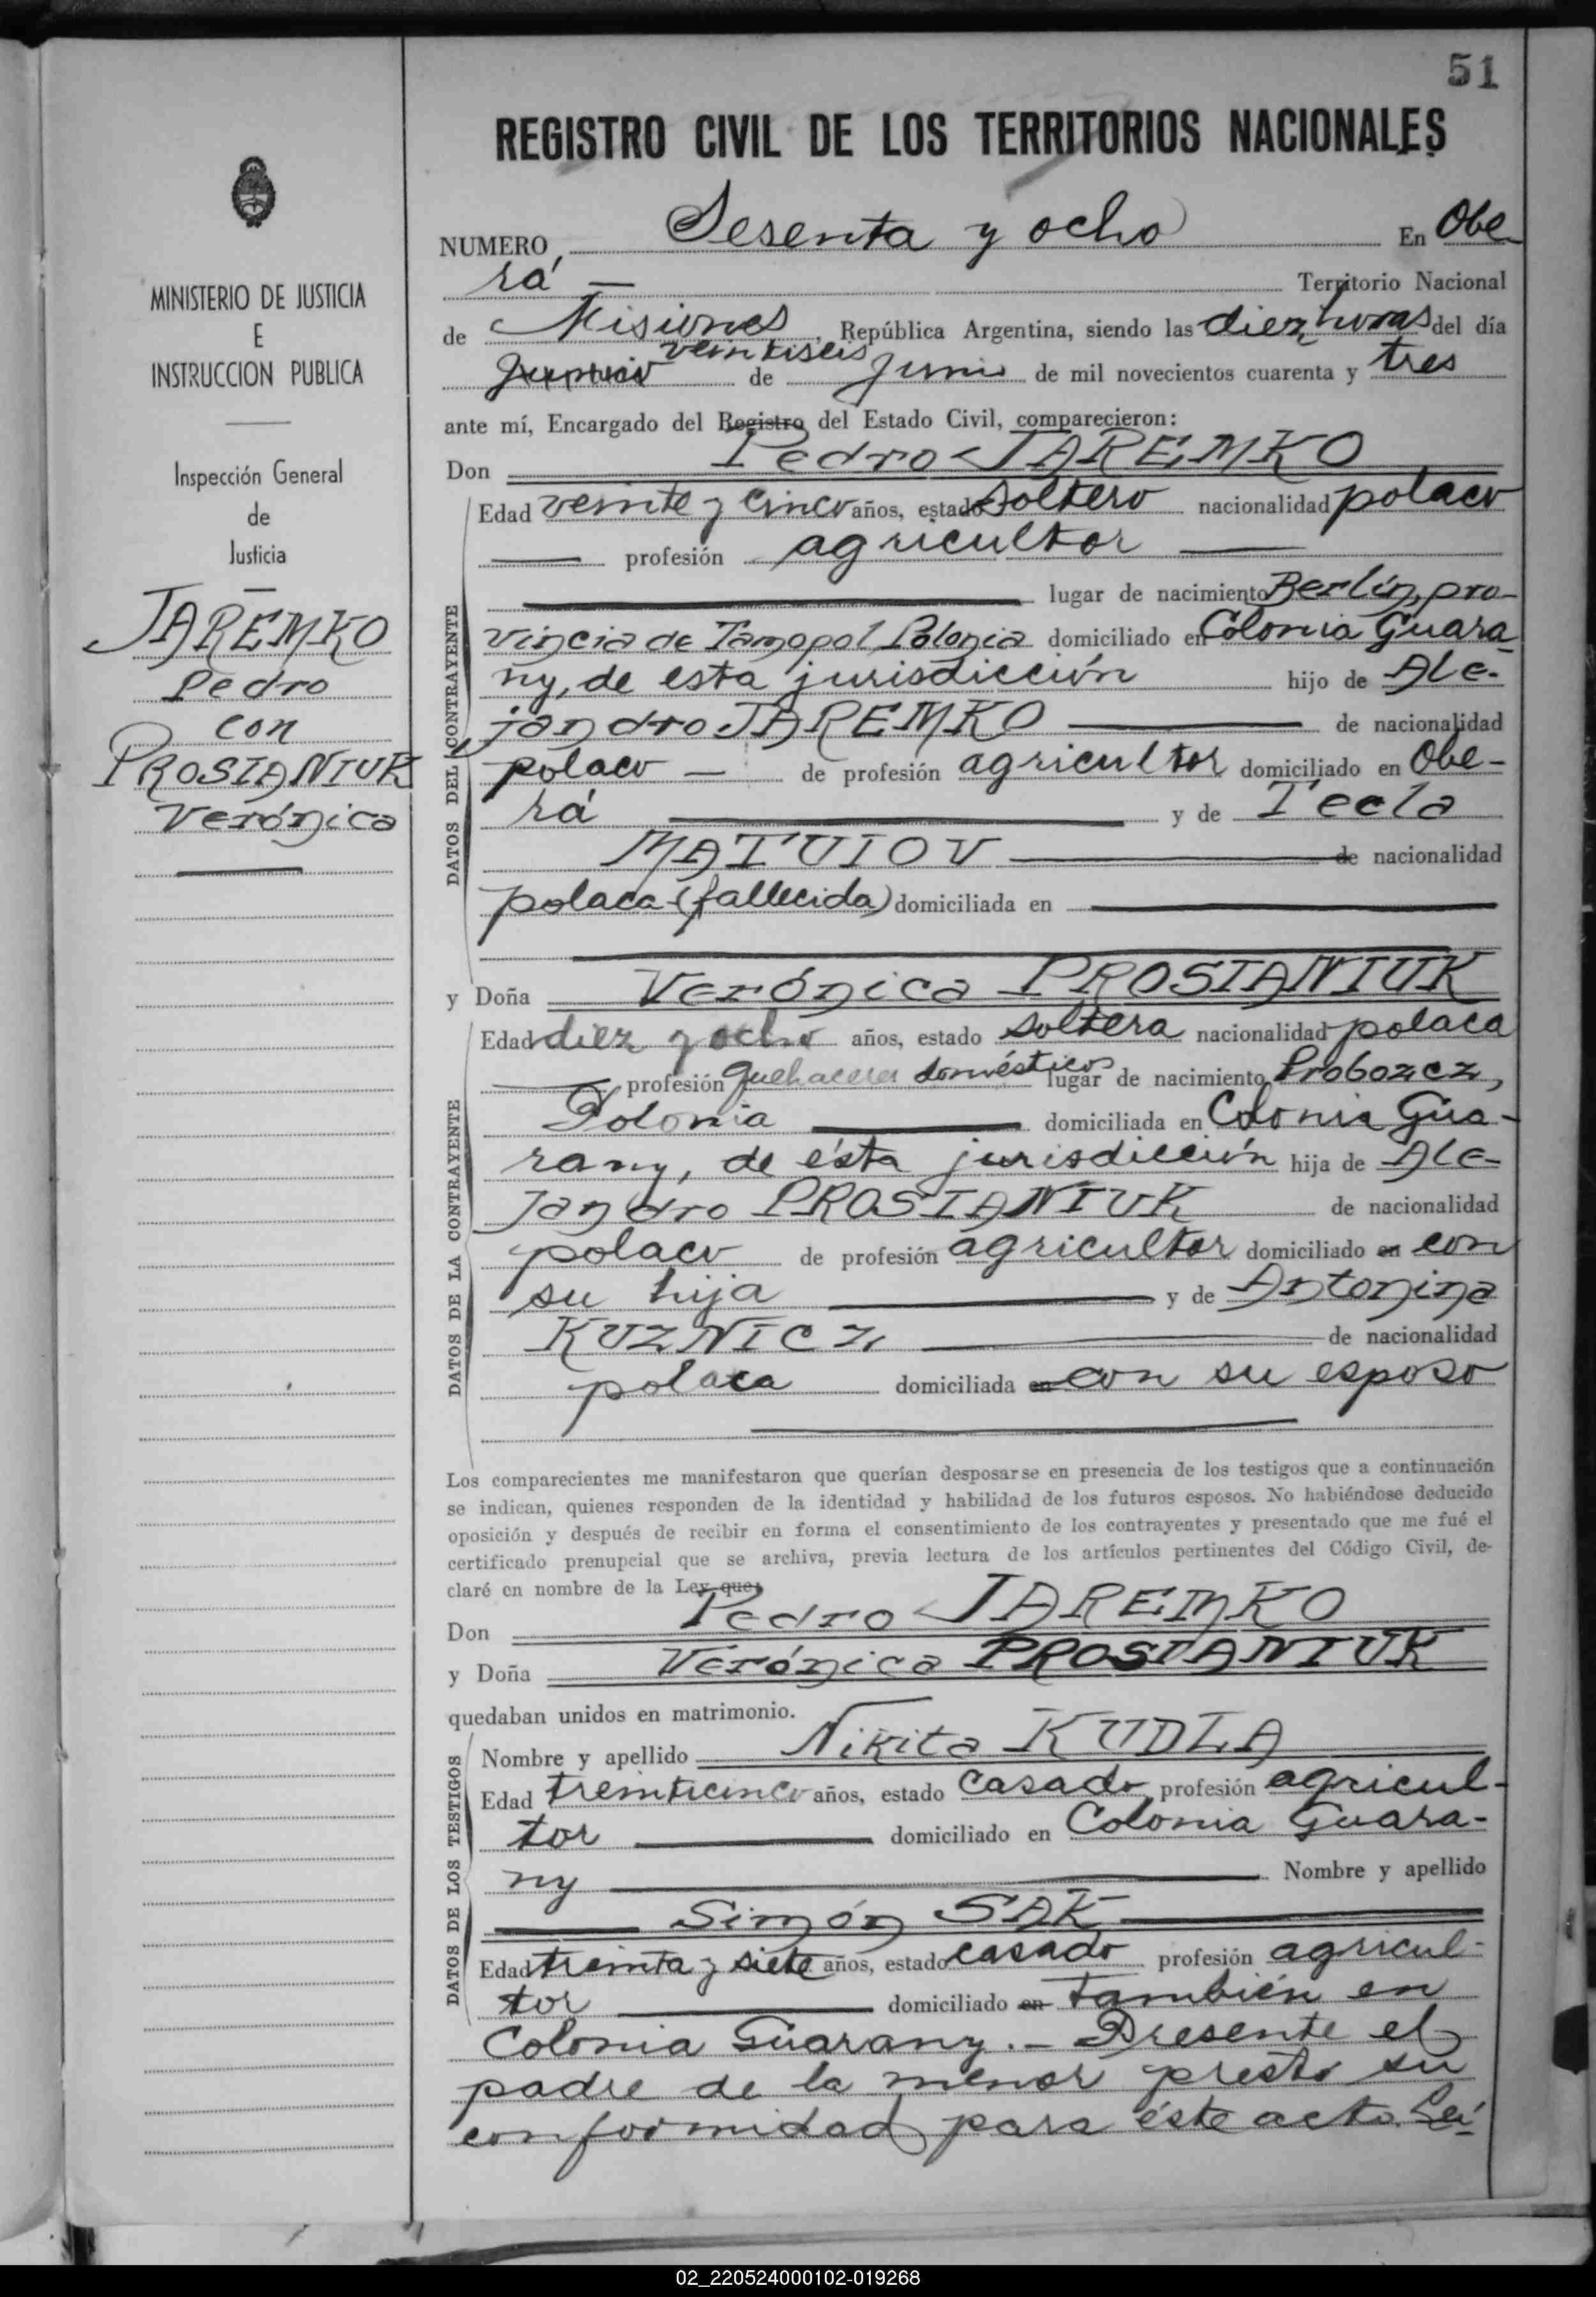 51
REGISTRO CIVIL DE LOS TERRITORIOS NACIONALES
MINISTERIO DE JUSTICIA
E
INSTRUCCION PUBLICA
Inspección General
de
Justicia
JAREMKO
Pedro
con
PROSIANIUK
Verónica
NUMERO, Sesenta y ocho En Obe-
rá — Territorio Nacional
de Misiones, República Argentina, siendo las diez horas del día
veintiseis de Junio de mil novecientos cuarenta y tres
ante mí, Encargado del Registro del Estado Civil, comparecieron:
Don Pedro JAREMKO
DATOS DEL CONTRAYENTE
Edad veinte y cinco años, estado soltero nacionalidad polaco
— profesión agricultor —
lugar de nacimiento Berlín, pro-
vincia de Tarnopol, Polonia domiciliado en Colonia Guara-
ny, de esta jurisdicción hijo de Ale-
jandro JAREMKO — de nacionalidad
polaco — de profesión agricultor domiciliado en Obe-
rá — y de Tecla
MATUIOV — de nacionalidad
polaca (fallecida) domiciliada en —
y Doña Verónica PROSIANIUK
DATOS DE LA CONTRAYENTE
Edad diez y ocho años, estado soltera nacionalidad polaca
— profesión quehaceres domésticos lugar de nacimiento Probozcz,
Polonia — domiciliada en Colonia Gua-
rany, de ésta jurisdicción hija de Ale-
jandro PROSIANIUK de nacionalidad
polaco de profesión agricultor domiciliado en con
su hija — y de Antonina
KUZNICZ — de nacionalidad
polaca domiciliada en con su esposo
Los comparecientes me manifestaron que querían desposarse en presencia de los testigos que a continuación
se indican, quienes responden de la identidad y habilidad de los futuros esposos. No habiéndose deducido
oposición y después de recibir en forma el consentimiento de los contrayentes y presentado que me fué el
certificado prenupcial que se archiva, previa lectura de los artículos pertinentes del Código Civil, de-
claré en nombre de la Ley que:
Don Pedro JAREMKO
y Doña Verónica PROSIANIUK
quedaban unidos en matrimonio.
DATOS DE LOS TESTIGOS
Nombre y apellido Nikita KUDLA
Edad treinticinco años, estado casado profesión agricul-
tor — domiciliado en Colonia Guara-
ny — Nombre y apellido
— Simón SAK —
Edad treinta y siete años, estado casado profesión agricul-
tor — domiciliado en También en
Colonia Guarany.- Presente el
padre de la menor prestó su
conformidad para éste acto. Leí-
02_220524000102-019268